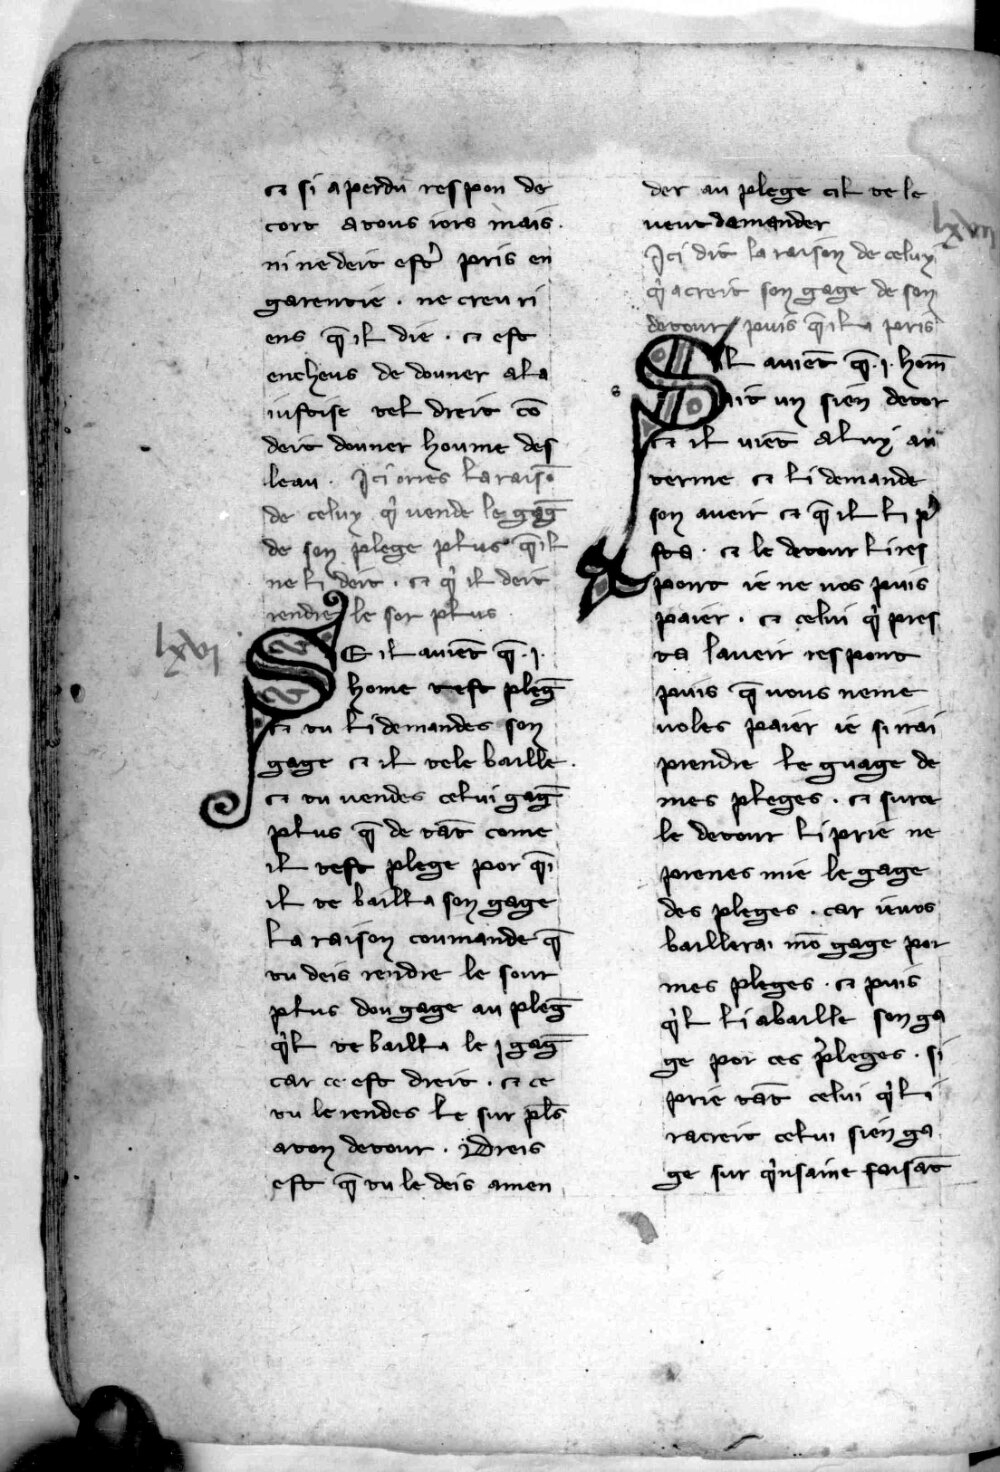 ⁊ si a perdu respon de
cort a tous iors mais.
ni ne deit estr̄ pris en
garentie . ne creu ri
ens q̄ il die . ⁊ est
encheus de douner a la
iustise tel dreit cō
deit douner houme des
leau . Ici orres la raisō
de celuy q̇ vende le gaḡ
de son plege plus q̄ il
ne li doit . ⁊ q̇ il deit
rendre le sor plus
lxvj
SE il auiēt q̄ .j.
home test pleḡ
⁊ tu li demandes son
gage ⁊ il te le baille .
⁊ tu vendes celui gaḡ
plus q̄ de tāt come
il test plege por q̄i
il te bailla son gage
la raison coumande q̄
tu deis rendre le sour
plus dou gage au pleḡ
q̇l te bailla le gaḡ
car ce est dreit . ⁊ ce
tu le rendes le sur pl̄s
a ton detour . dreis
est q̄ tu le deis amen
der au plege cil te le
veut demander
lxvij
Ici dit la raison de celuy
q̇ acreit son gage de son
detour puis q̄ il a pris
Sil auiēt q̄ .j. hom̄
ait un sien detor
⁊ il uiēt a luy au
terme ⁊ li demande
son aueir ⁊ q̄ il li p̄
sta . ⁊ le detour li res
pont ie ne uos puis
paier . ⁊ celui q̇ pres
ta laueir respont
puis q̄ vous ne me
voles paier ie si irai
prendre le guage de
mes pleges . ⁊ sur ce
le detour li prie ne
prenes mie le gage
des pleges . car ie uos
baillerai mō gage por
mes pleges . ⁊ puis
q̇l li a baille son ga
ge por ces pleges . si
prie tāt celui q̇ li
racreit celui sien ga
ge sur q̇nsaine faisāt